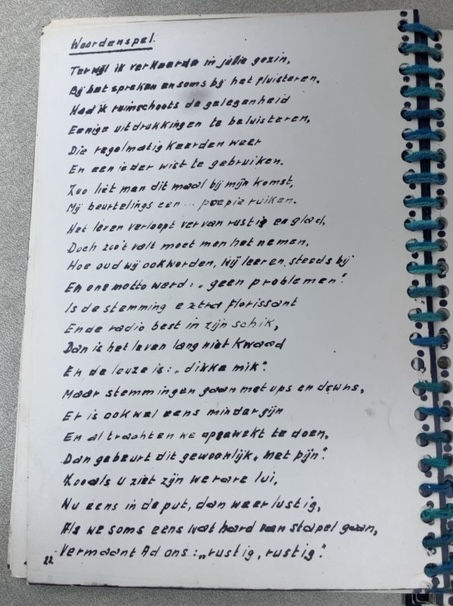 Woordenspel.
Terwijl ik verkeerde in jullie gezin,
Bij het spreken en soms bij het fluisteren,
Had ik ruimschoots de gelegenheid
Eenige uitdrukkingen te beluisteren,
Die regelmatig keerden weer
En een ieder wist te gebruiken.
Zoo liet man dit maal bij mijn komst,
Mij beurtelings een ... poepie ruiken.
Het leven verloopt ver van rustig en glad,
Doch zoo't valt moet men het nemen,
Hoe oud wij ook worden, wij leeren steeds bij
En ons motto werd: „geen problemen".
Is de stemming extra florissant
En de radio best in zijn schik,
Dan is het leven lang niet kwaad
En de leuze is: „dikke mik".
Maar stemmingen gaan met ups en downs,
Er is ook wel eens minder fijn
En al trachten we opgewekt te doen,
Dan gebeurt dit gewoonlijk „met pijn".
Zooals U ziet zijn we rare lui,
Nu eens in de put, dan weer lustig,
Als we soms eens wat hard van stapel gaan,
Vermaant Ad ons: „rustig, rustig".
22